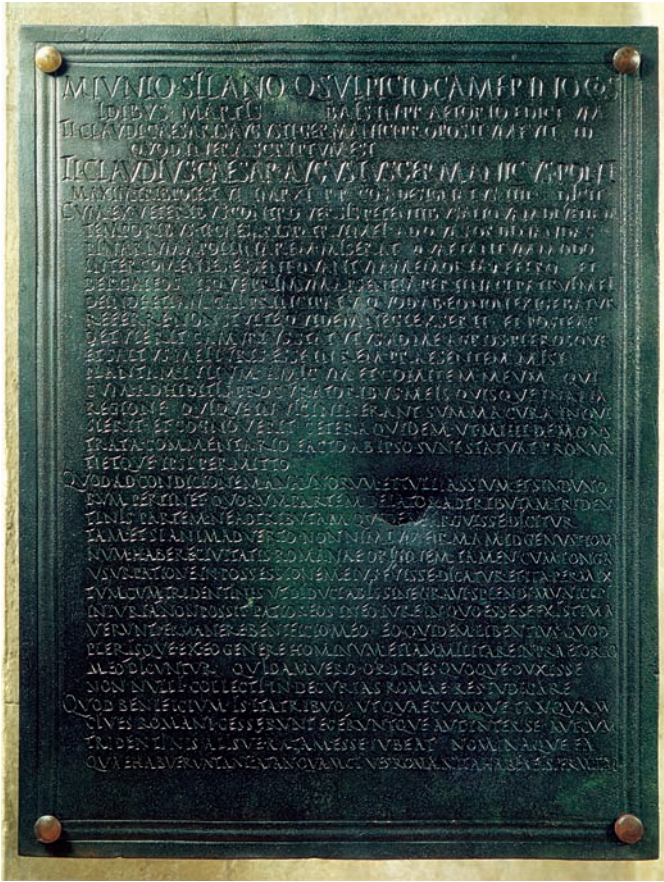 M·IVNIO·SILANO·Q·SVLPICIO·CAMERINO·COS
IDIBVS·MARTIS BAIS IN PRAETORIO EDICTVM
TI CLAVDI CAESARIS AVGVSTI GERMANICI PROPOSITVM FVIT ID
QVOD INFRA SCRIPTVM EST
TI CLAVDIVS CAESAR AVGVSTVS GERMANICVS PONT
MAXIM TRIB POTEST VI IMP XI P P COS DESIGNATVS IIII DICIT
CVM EX VETERIBVS CONTROVERSIS PENDENTIBVS ALIQVAMDIV ETIAM
TEMPORIBVS TI CAESARIS PATRVI MEI AD QVAS ORDINANDAS
PINARIVM APOLLINAREM MISERAT QVAE TANTVM MODO
INTER COMENSES ESSENT QVANTVM MEMORIA REFERO ET
BERGALEOS ISQVE PRIMVM APSENTIA PERTINACI PATRVI MEI
DEINDE ETIAM GAI PRINCIPATV QVOD AB EO NON EXIGEBATVR
REFERRE NON STVLTE QVIDEM NEGLEXSERIT ET POSTEAC
DETVLERIT CAMVRIVS STATVTVS AD ME AGROS PLEROSQVE
ET SALTVS MEI IVRIS ESSE IN REM PRAESENTEM MISI
PLANTAM IVLIVM AMICVM ET COMITEM MEVM QVI
CVM ADHIBITIS PROCVRATORIBVS MEIS QVISQVE IN ALIA
REGIONE QVIQVE IN VICINIA ERANT SVMMA CVRA INQVI
SIERIT ET COGNOVERIT CETERA QVIDEM VT MIHI DEMONS
TRATA COMMENTARIO FACTO AB IPSO SVNT STATVAT PRONVN
TIETQVE IPSI PERMITTO
QVOD AD CONDICIONEM ANAVNORVM ET TVLLIASSIVM ET SINDVNO
RVM PERTINET QVORVM PARTEM DELATOR ADTRIBVTAM TRIDEN
TINIS PARTEM NE ADTRIBVTAM QVIDEM ARGVISSE DICITVR
TAM ET SI ANIMADVERTO NON NIMIVM FIRMAM ID GENVS HOMI
NVM HABERE CIVITATIS ROMANAE ORIGINEM TAMEN CVM LONGA
VSVRPATIONE IN POSSESSIONEM EIVS FVISSE DICATVR ET ITA PERMIX
TVM CVM TRIDENTINIS VT DIDVCI AB IS SINE GRAVI SPLENDI MVNICIPI
INIVRIA NON POSSIT PATIOR EOS IN EO IVRE IN QVO ESSE SE EXISTIMA
VERVNT PERMANERE BENIFICIO MEO EO QVIDEM LIBENTIVS QVOD
PLERISQVE EX EO GENERE HOMINVM ETIAM MILITARE IN PRAETORIO
MEO DICVNTVR QVIDAM VERO ORDINES QVOQVE DVXISSE
NON NVLLI COLLECTI IN DECVRIAS ROMAE RES IVDICARE
QVOD BENIFICIVM IS ITA TRIBVO VT QVAECVMQVE TANQVAM
CIVES ROMANI GESSERVNT EGERVNTQVE AVT INTER SE AVT CVM
TRIDENTINIS ALISVE RATAM ESSE IVBEAT NOMINAQVE EA
QVAE HABVERVNT ANTEA TANQVAM CIVES ROMANI ITA HABERE IS PERMITTAM